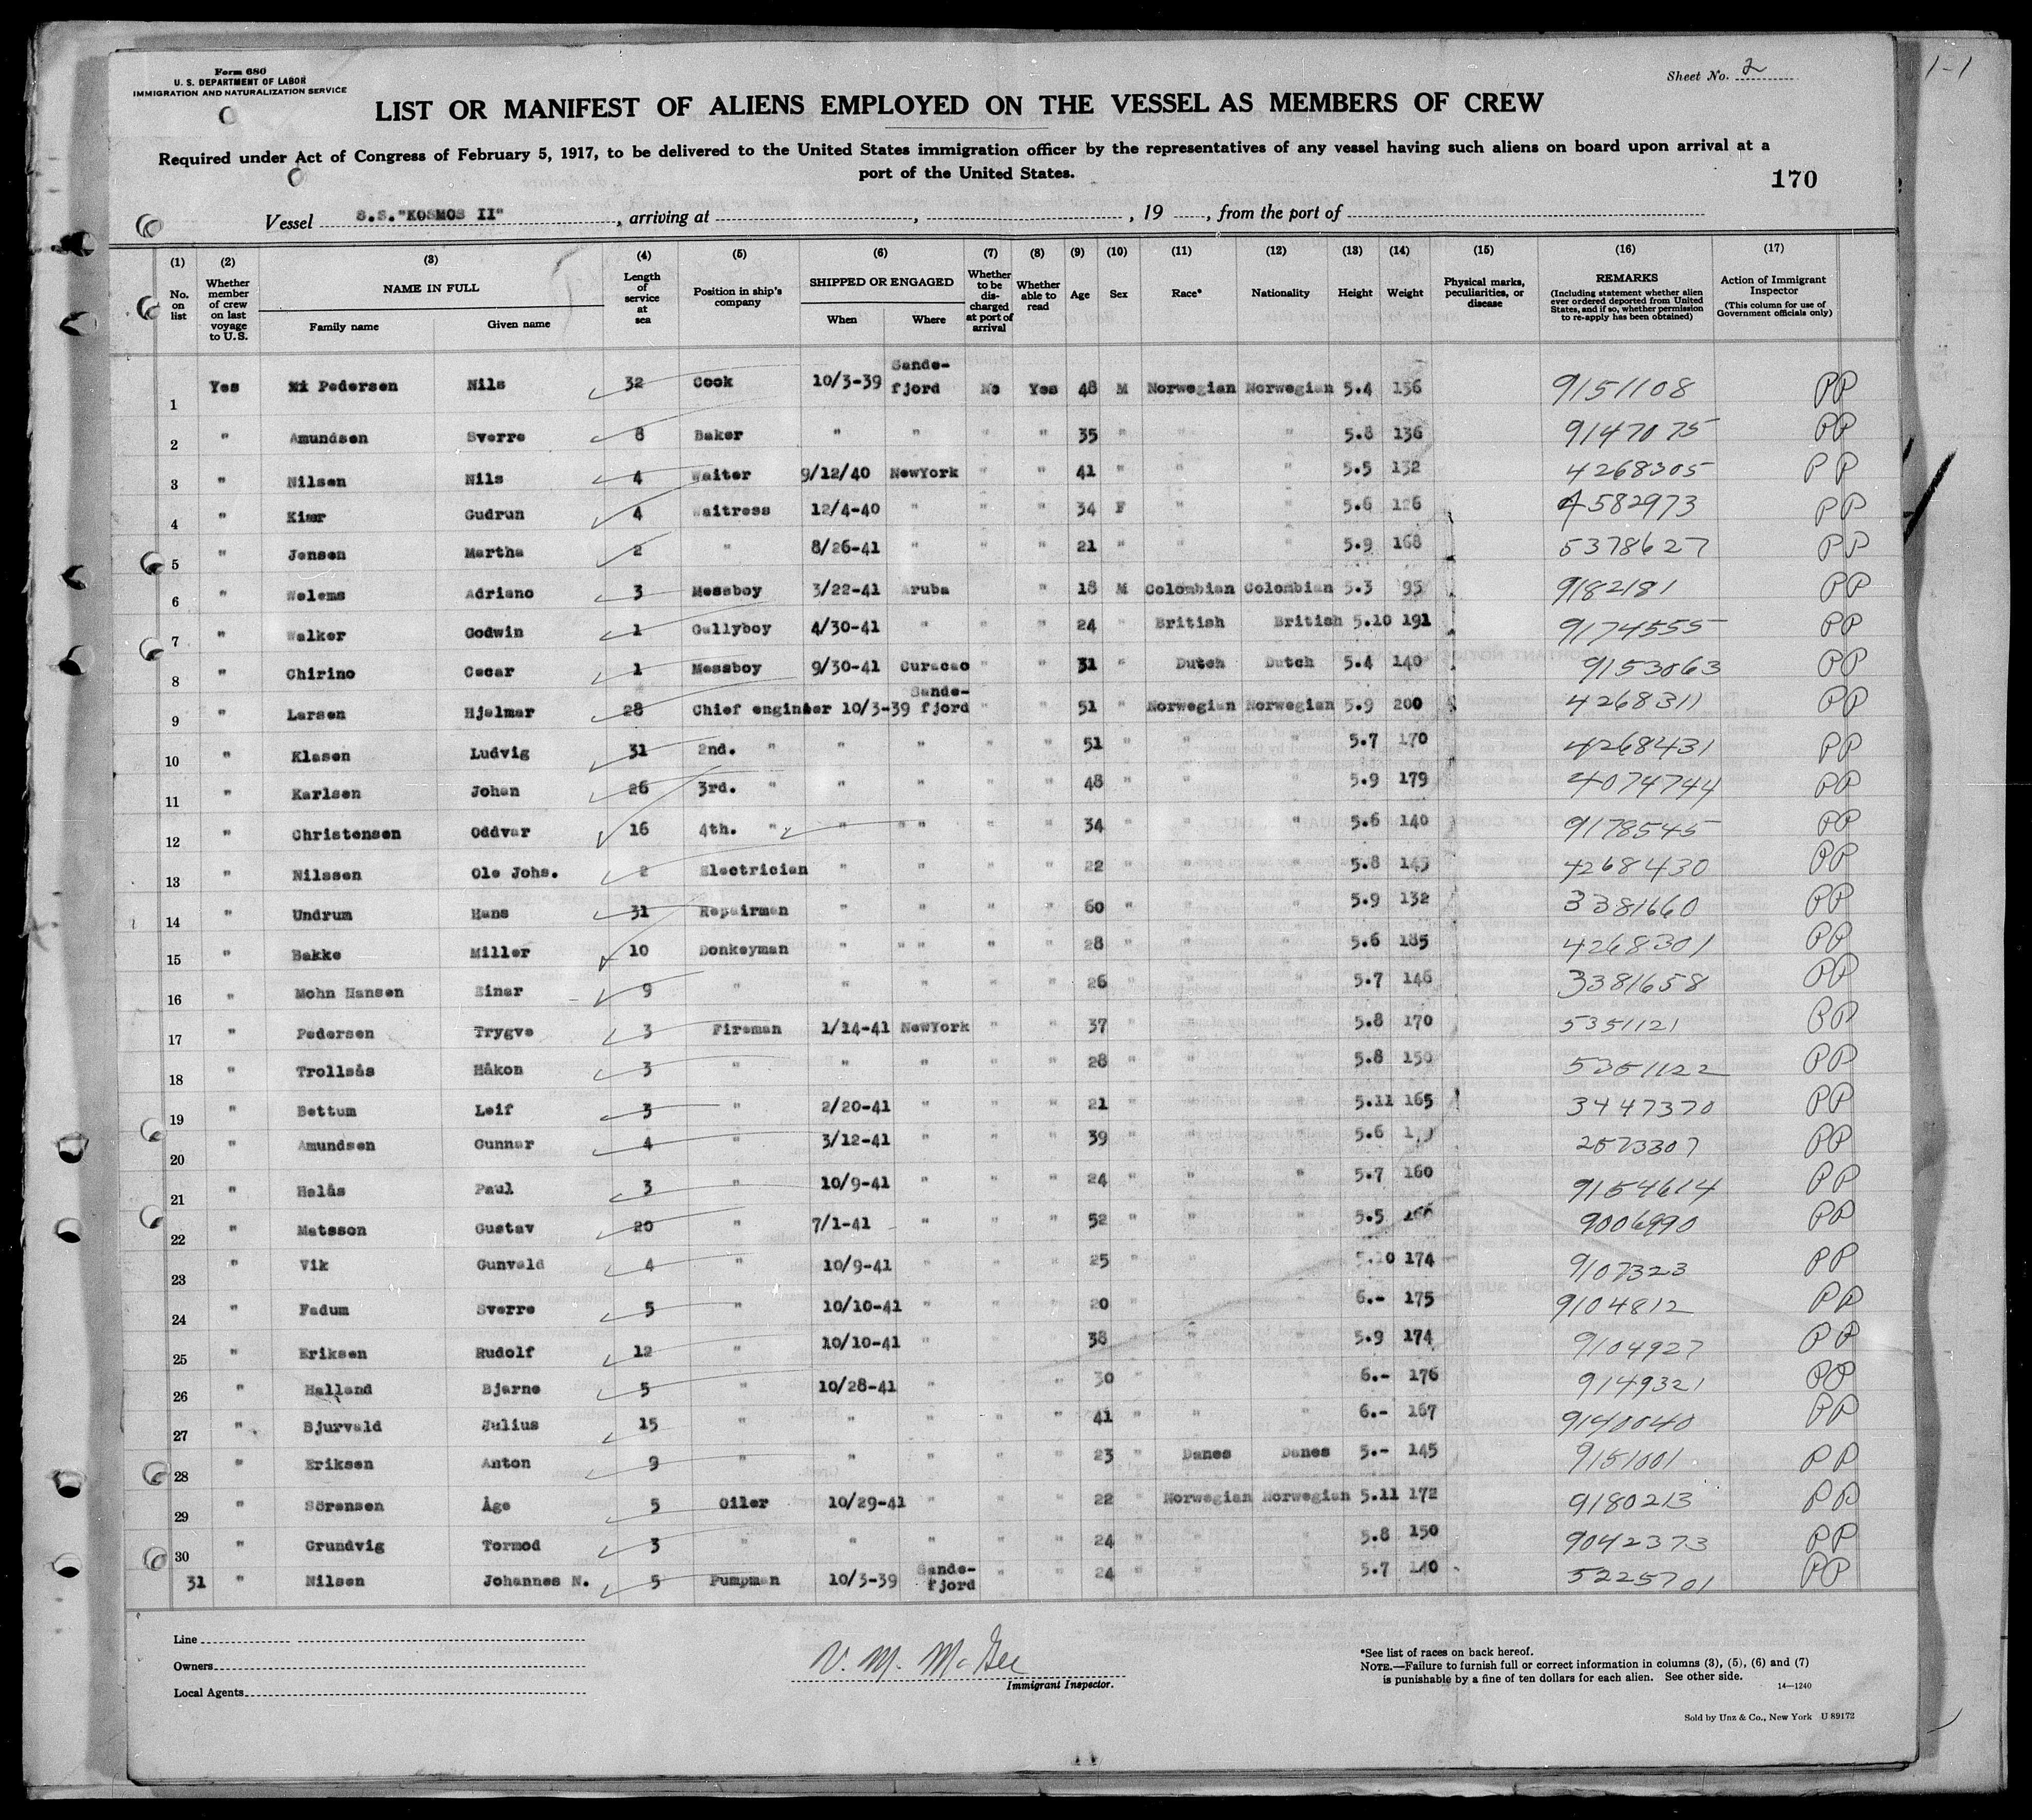 Form 680
U. S. DEPARTMENT OF LABOR
IMMIGRATION AND NATURALIZATION SERVICE
Sheet No. 2
1-1
LIST OR MANIFEST OF ALIENS EMPLOYED ON THE VESSEL AS MEMBERS OF CREW
Required under Act of Congress of February 5, 1917, to be delivered to the United States immigration officer by the representatives of any vessel having such aliens on board upon arrival at a
port of the United States.
170
Vessel S.S."KOSMOS II", arriving at , , 19 , from the port of
(1) (2) (3) (4) (5) (6) (7) (8) (9) (10) (11) (12) (13) (14) (15) (16) (17)
No. on list Whether member of crew on last voyage to U.S. NAME IN FULL Family name Given name Length of service at sea Position in ship's company SHIPPED OR ENGAGED When Where Whether to be discharged at port of arrival Whether able to read Age Sex Race* Nationality Height Weight Physical marks, peculiarities, or disease REMARKS (Including statement whether alien ever ordered deported from United States, and if so, whether permission to re-apply has been obtained) Action of Immigrant Inspector (This column for use of Government officials only)
1 Yes Pedersen Nils 32 Cook 10/3-39 Sande-fjord No Yes 48 M Norwegian Norwegian 5.4 156 9151108 PP
2 " Amundsen Sverre 8 Baker " " " " 35 " " " 5.8 136 9147075 PP
3 " Nilsen Nils 4 Waiter 9/12/40 NewYork " " 41 " " " 5.5 132 4268305 PP
4 " Kiær Gudrun 4 Waitress 12/4-40 " " " 34 F " " 5.6 126 4582973 PP
5 " Jensen Martha 2 " 8/26-41 " " " 21 " " " 5.9 168 5378627 PP
6 " Welems Adriano 3 Messboy 3/22-41 Aruba " 18 M Colombian Colombian 5.3 95 9182181 PP
7 " Walker Godwin 1 Gallyboy 4/30-41 " " " 24 " British British 5.10 191 9174555 PP
8 " Chirino Oscar 1 Messboy 9/30-41 Curacao " " 31 " Dutch Dutch 5.4 140 9153063 PP
9 " Larsen Hjalmar 28 Chief engineer 10/3-39 Sande-fjord " " 51 " Norwegian Norwegian 5.9 200 4268311 PP
10 " Klasen Ludvig 31 2nd. " " " " " 51 " " " 5.7 170 4268431 PP
11 " Karlsen Johan 26 3rd. " " " " " 48 " " " 5.9 179 4074744 PP
12 " Christensen Oddvar 16 4th. " " " " " " 34 " " " 5.6 140 9178545 PP
13 " Nilssen Ole Johs. 2 Electrician " " " " 22 " " " 5.8 145 4268430 PP
14 " Undrum Hans 31 Repairman " " " " 60 " " " 5.9 132 3381660 PP
15 " Bakke Miller 10 Donkeyman " " " " " 28 " " " 5.6 185 4268301 PP
16 " Mohn Hansen Einar 9 " " " " " 26 " " " 5.7 146 3381658 PP
17 " Pedersen Trygve 3 Fireman 1/14-41 NewYork " " 37 " " " 5.8 170 5351121 PP
18 " Trollsås Håkon 3 " " " " " 28 " " " 5.8 150 5351122 PP
19 " Bettum Leif 3 " 2/20-41 " " " 21 " " " 5.11 165 3447370 PP
20 " Amundsen Gunnar 4 " 3/12-41 " " " 39 " " " 5.6 2573307 PP
21 " Helås Paul 3 " 10/9-41 " " " 24 " " " 5.7 160 9154614 PP
22 " Matsson Gustav 20 " 7/1-41 " " " 52 " " " 5.5 166 9006990 PP
23 " Vik Gunvald 4 " 10/9-41 " " " 25 " " " 5.10 174 9107323 PP
24 " Fadum Sverre 5 " 10/10-41 " " " 20 " " " 6.- 175 9104812 PP
25 " Eriksen Rudolf 12 " 10/10-41 " " " 38 " " " 5.9 174 9104927 PP
26 " Halland Bjarne 5 " 10/28-41 " " " 30 " " " 6.- 176 9149321 PP
27 " Bjurvald Julius 15 " " " " " 41 " " " 6.- 167 9140040 PP
28 " Eriksen Anton 9 " " " " " 23 " Danes Danes 5.- 145 9151001 PP
29 " Sörensen Åge 5 Oiler 10/29-41 " " " 22 " Norwegian Norwegian 5.11 172 9180213 PP
30 " Grundvig Tormod 3 " " " " " 24 " " " 5.8 150 9042373 PP
31 " Nilsen Johannes N. 5 Pumpman 10/3-39 Sande-fjord " " 24 " " " 5.7 140 5225701 PP
Line
Owners
Local Agents
V. M. McGee
Immigrant Inspector.
*See list of races on back hereof.
NOTE.—Failure to furnish full or correct information in columns (3), (5), (6) and (7)
is punishable by a fine of ten dollars for each alien. See other side.
14—1240
Sold by Unz & Co., New York U 89172